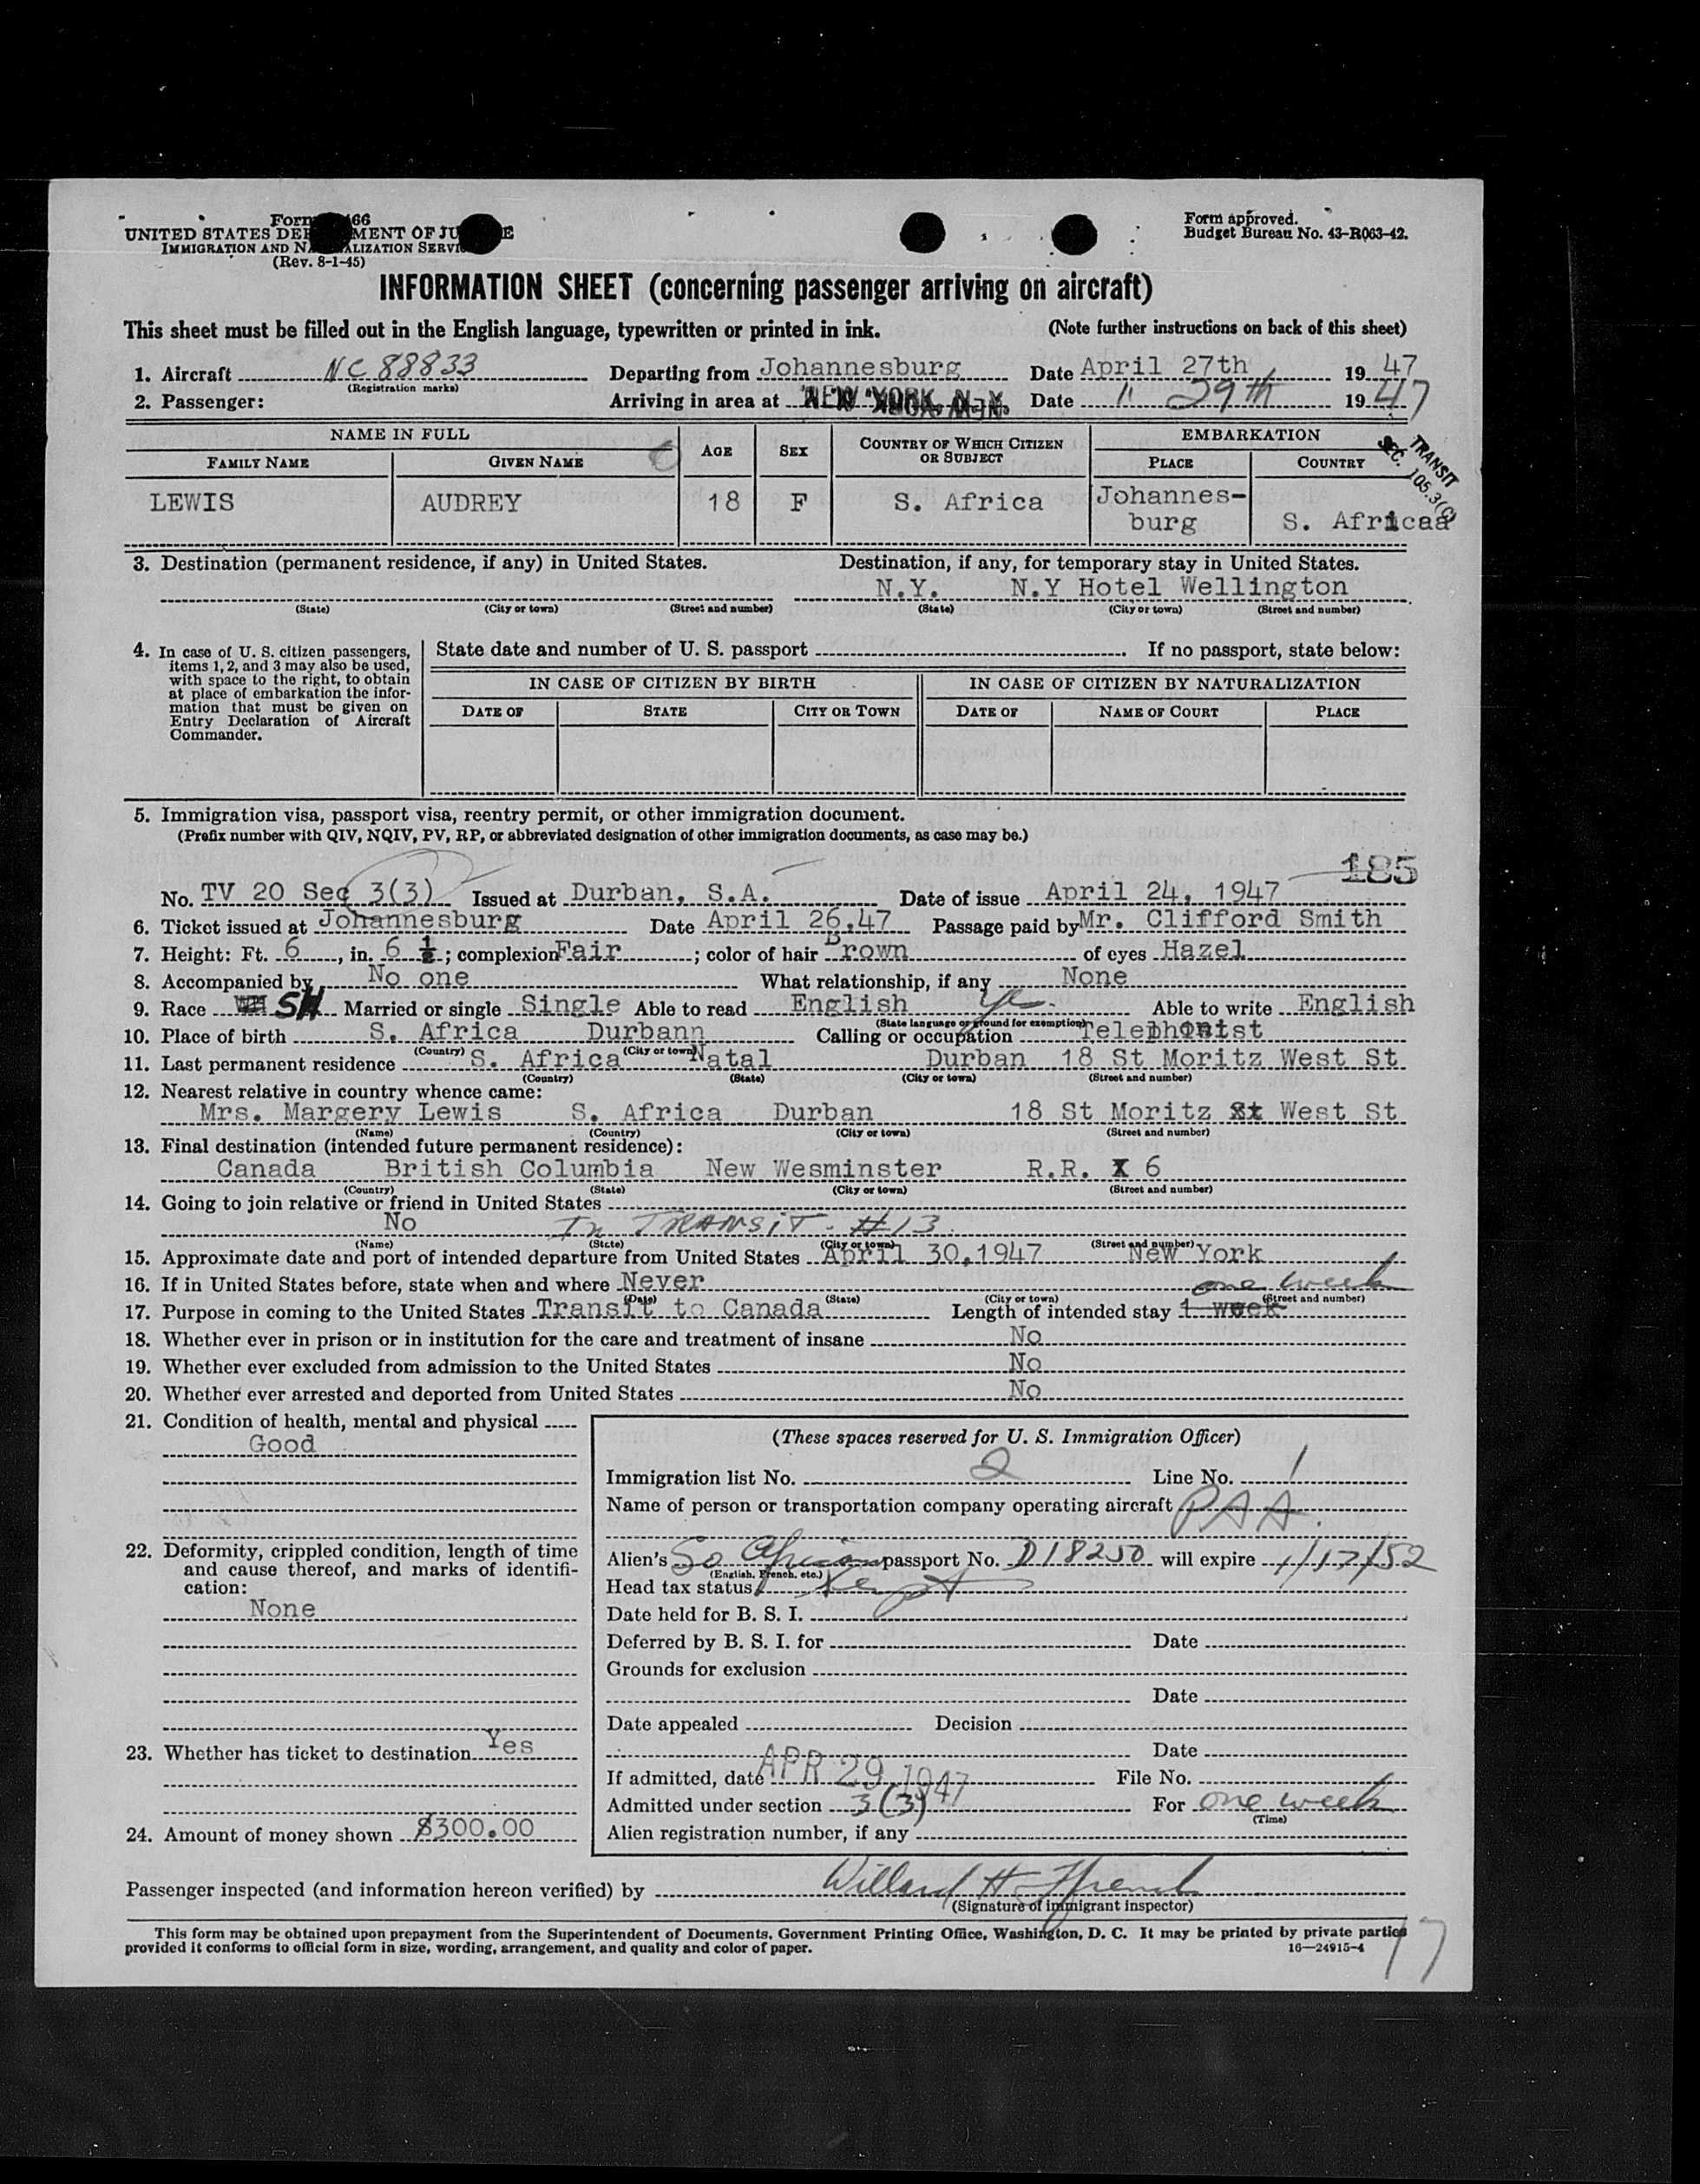 Form 66
UNITED STATES DEPARTMENT OF JUSTICE
IMMIGRATION AND NATURALIZATION SERVICE
(Rev. 8-1-45)
Form approved.
Budget Bureau No. 43-R063-42.
INFORMATION SHEET (concerning passenger arriving on aircraft)
This sheet must be filled out in the English language, typewritten or printed in ink. (Note further instructions on back of this sheet)
1. Aircraft NC 88833 Departing from Johannesburg Date April 27th 1947
(Registration marks)
2. Passenger: Arriving in area at NEW YORK, N.Y. Date " 29th 1947
NAME IN FULL AGE SEX COUNTRY OF WHICH CITIZEN OR SUBJECT EMBARKATION
FAMILY NAME GIVEN NAME PLACE COUNTRY
TRANSIT
SEC. 105.3(C)
LEWIS AUDREY 18 F S. Africa Johannes-
burg S. Africaa
3. Destination (permanent residence, if any) in United States. Destination, if any, for temporary stay in United States.
N.Y. N.Y Hotel Wellington
(State) (City or town) (Street and number) (State) (City or town) (Street and number)
4. In case of U. S. citizen passengers,
items 1, 2, and 3 may also be used,
with space to the right, to obtain
at place of embarkation the infor-
mation that must be given on
Entry Declaration of Aircraft
Commander.
State date and number of U. S. passport If no passport, state below:
IN CASE OF CITIZEN BY BIRTH IN CASE OF CITIZEN BY NATURALIZATION
DATE OF STATE CITY OR TOWN DATE OF NAME OF COURT PLACE
5. Immigration visa, passport visa, reentry permit, or other immigration document.
(Prefix number with QIV, NQIV, PV, RP, or abbreviated designation of other immigration documents, as case may be.)
185
No. TV 20 Sec 3(3) Issued at Durban, S.A. Date of issue April 24, 1947
6. Ticket issued at Johannesburg Date April 26,47 Passage paid by Mr. Clifford Smith
7. Height: Ft. 6, in. 6 ½; complexion Fair; color of hair Brown of eyes Hazel
8. Accompanied by No one What relationship, if any None
9. Race SH Married or single Single Able to read English yes Able to write English
(State language or ground for exemption)
10. Place of birth S. Africa Durbann Calling or occupation Telephonist
(Country) (City or town)
11. Last permanent residence S. Africa Natal Durban 18 St Moritz West St
(Country) (State) (City or town) (Street and number)
12. Nearest relative in country whence came:
Mrs. Margery Lewis S. Africa Durban 18 St Moritz St West St
(Name) (Country) (City or town) (Street and number)
13. Final destination (intended future permanent residence):
Canada British Columbia New Wesminster R.R. X 6
(Country) (State) (City or town) (Street and number)
14. Going to join relative or friend in United States
No In TRANSIT - #13
(Name) (State) (City or town) (Street and number)
15. Approximate date and port of intended departure from United States April 30,1947 New York
16. If in United States before, state when and where Never
(Date) (State) (City or town) (Street and number)
one week
17. Purpose in coming to the United States Transit to Canada Length of intended stay 1 week
18. Whether ever in prison or in institution for the care and treatment of insane No
19. Whether ever excluded from admission to the United States No
20. Whether ever arrested and deported from United States No
21. Condition of health, mental and physical
Good
22. Deformity, crippled condition, length of time
and cause thereof, and marks of identifi-
cation:
None
23. Whether has ticket to destination Yes
24. Amount of money shown $300.00
(These spaces reserved for U. S. Immigration Officer)
Immigration list No. 2 Line No. 1
Name of person or transportation company operating aircraft PAA.
Alien's So African passport No. D18250 will expire 1/17/52
(English, French, etc.)
Head tax status
Date held for B. S. I.
Deferred by B. S. I. for Date
Grounds for exclusion
Date
Date appealed Decision
Date
If admitted, date APR 29 1947 File No.
Admitted under section 3(3) For one week
(Time)
Alien registration number, if any
Passenger inspected (and information hereon verified) by Willard H
(Signature of immigrant inspector)
This form may be obtained upon prepayment from the Superintendent of Documents, Government Printing Office, Washington, D. C. It may be printed by private parties
provided it conforms to official form in size, wording, arrangement, and quality and color of paper. 16—24915-4
17